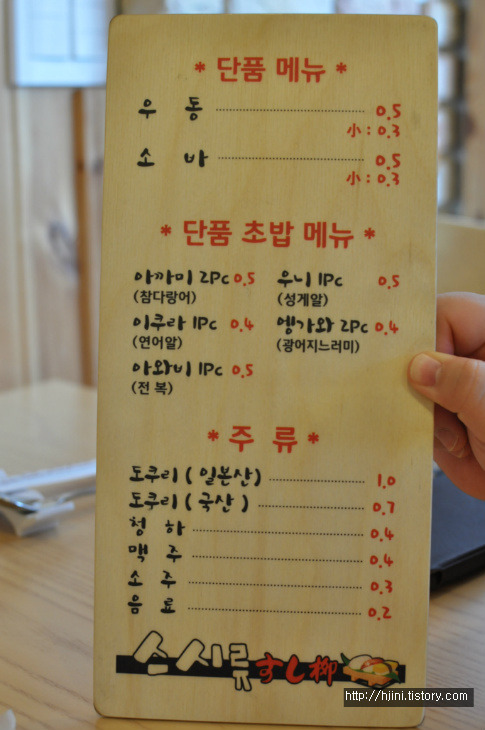 * 단품 메뉴 *
우 동 0.5
小 : 0.3
소 바 0.5
小 : 0.3
* 단품 초밥 메뉴 *
아까미 2Pc 0.5 우니 1Pc 0.5
(참다랑어) (성게알)
이쿠라 1Pc 0.4 엥가와 2Pc 0.4
(연어알) (광어지느러미)
아와비 1Pc 0.5
(전 복)
* 주 류 *
도쿠리 ( 일본산) 1.0
도쿠리 ( 국산 ) 0.7
청 하 0.4
맥 주 0.4
소 주 0.3
음 료 0.2
스시류 すし柳
http://hjini.tistory.com